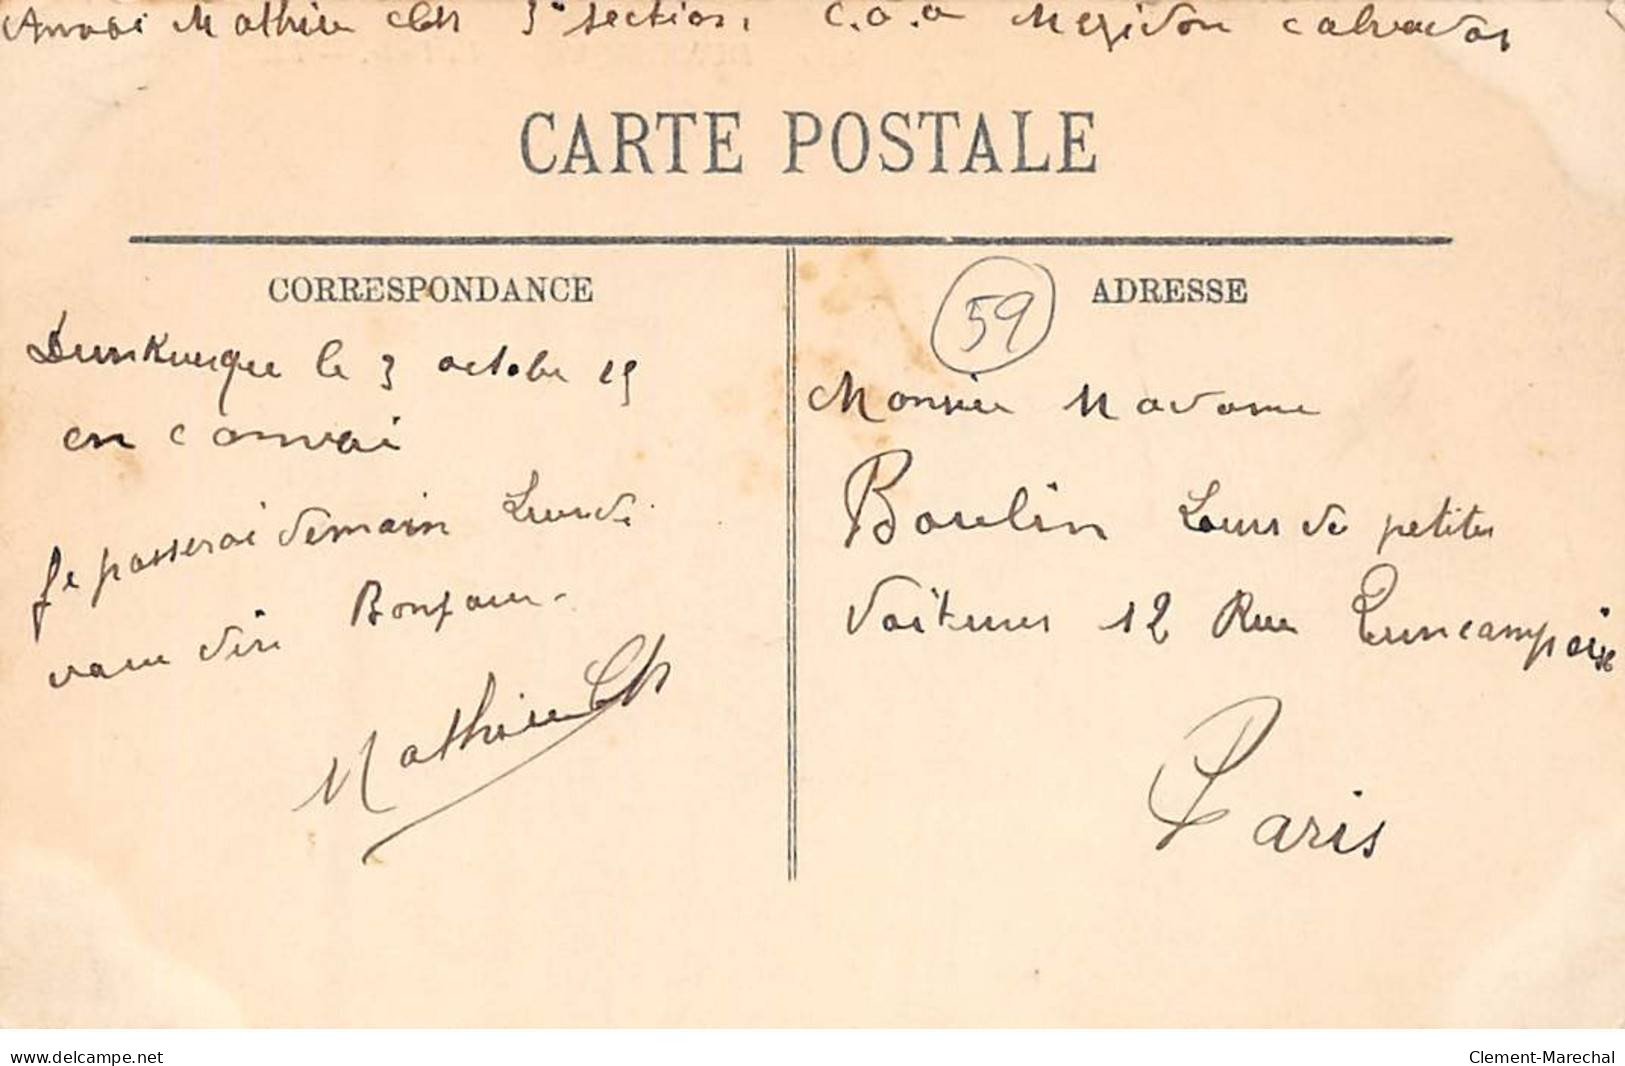 Anvoi Mathieu Ch 3e section, C.O.A Mezidon Calvados
CARTE POSTALE
CORRESPONDANCE
Dunkuerque le 3 octobre 15
en convoi
Je passerai demain Lundi
vous dire Bonjour.
Mathieu Ch
59
ADRESSE
Monsieur Madame
Boulin Loueur de petites
Voitures 12 Rue Quincampoise
Paris
www.delcampe.net
Clement-Marechal